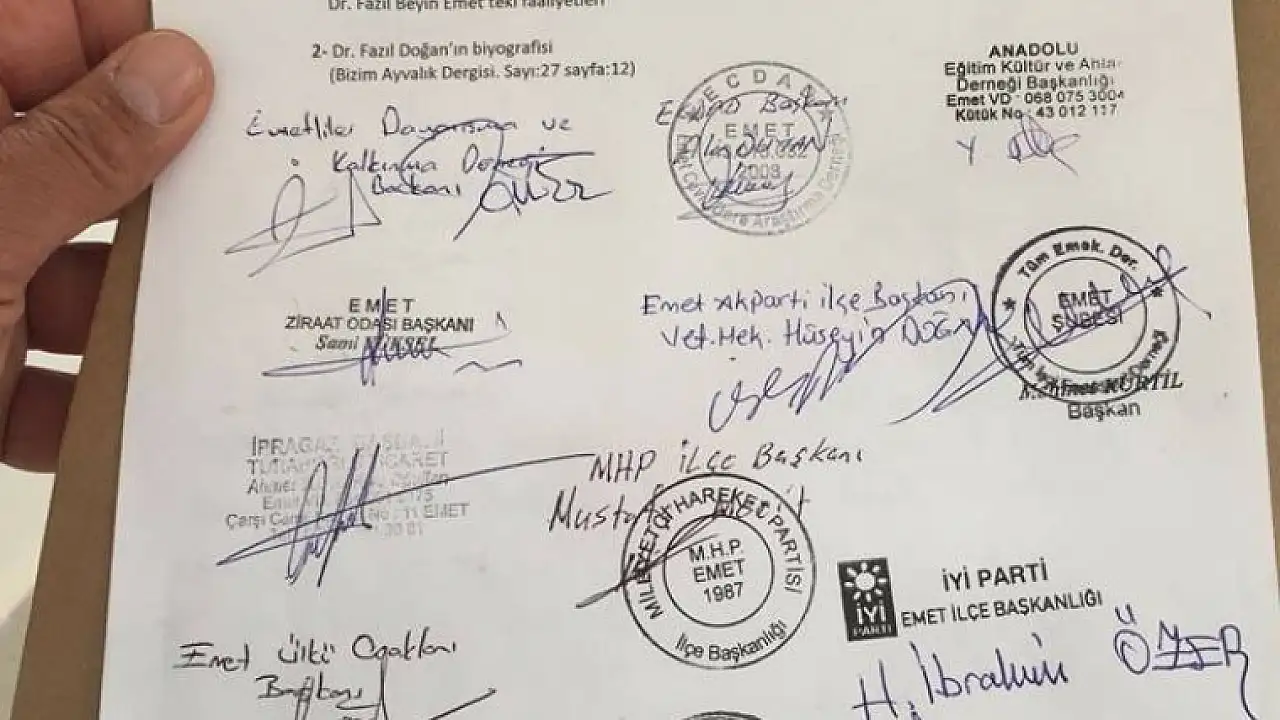 Dr. Fazıl Beyin Emet'teki faaliyetleri
2- Dr. Fazıl Doğan'ın biyografisi
(Bizim Ayvalık Dergisi. Sayı:27 sayfa:12)
Emetliler Dayanışma ve
Kalkınma Derneği
Başkanı
Başkanı
EMET
2008
Araştırma Derneği
ANADOLU
Eğitim Kültür ve
Derneği Başkanlığı
Emet VD : 068 075 3004
Kütük No : 43 012 117
EMET
ZİRAAT ODASI BAŞKANI
Sami
Emet Akparti ilçe Başkanı
Vet. Hek. Hüseyin DOĞAN
Tüm Emek. Der.
EMET
ŞUBESİ
KURTİL
Başkan
İPRAGAZ
EMET
MHP ilçe Başkanı
MİLLİYETÇİ HAREKET PARTİSİ
M.H.P.
EMET
1987
İlçe Başkanlığı
İYİ
PARTİ
İYİ PARTİ
EMET İLÇE BAŞKANLIĞI
H. İbrahim ÖZER
Emet Ülkü Ocakları
Başkanı